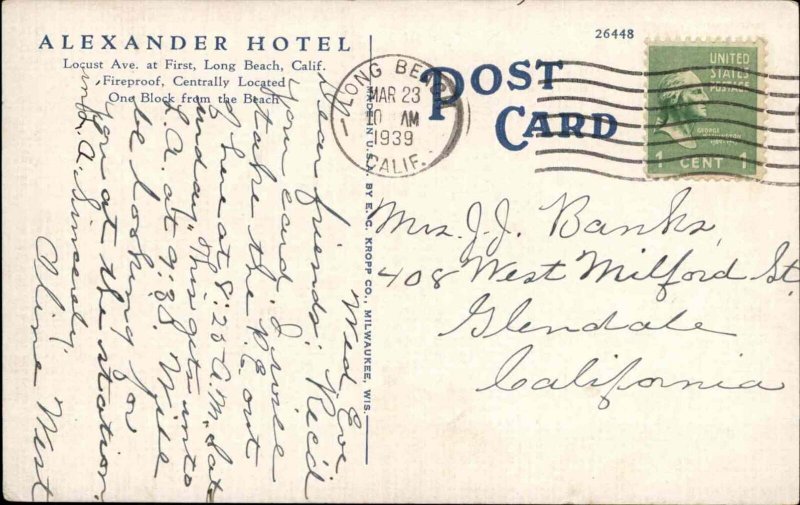 ALEXANDER HOTEL
Locust Ave. at First, Long Beach, Calif.
Fireproof, Centrally Located
One Block from the Beach
26448
POST
CARD
LONG BEACH
MAR 23
10 AM
1939
CALIF.
UNITED
STATES
POSTAGE
GEORGE
WASHINGTON
1 CENT 1
MADE IN U.S.A. BY E. C. KROPP CO., MILWAUKEE, WIS.
Mrs. J. J. Banks,
408 West Milford St.
Glendale
California
Wed Eve
Dear friends: Rec'd
your card. I will
take the P.E. out
of here at 8:25 A.M. Sat-
urday. This gets into
L.A. at 9:28. Will
be looking for
you at the station
in L.A. Sincerely,
Aline West